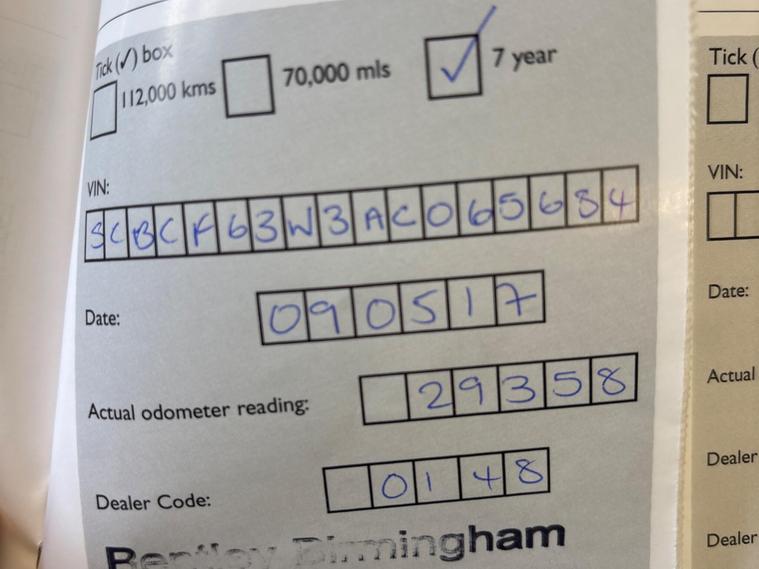 Tick (✓) box
112,000 kms 70,000 mls ✓ 7 year
VIN:
SCBCF63W3AC065684
Date: 090517
Actual odometer reading: 29358
Dealer Code: 0148
Bentley Birmingham
Tick (
VIN:
Date:
Actual
Dealer
Dealer